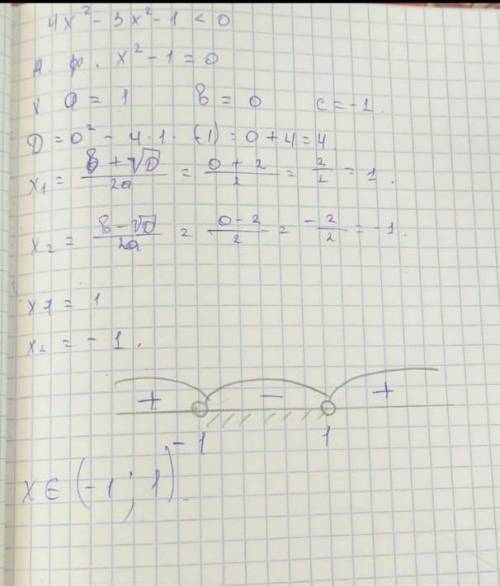 4x² - 3x² - 1 < 0
x² - 1 = 0
a = 1 b = 0 c = -1.
D = 0² - 4·1·(-1) = 0 + 4 = 4.
x₁ = b + √D / 2a = 0 + 2 / 2 = 2 / 2 = 1.
x₂ = b - √D / 2a = 0 - 2 / 2 = -2 / 2 = -1.
x₁ = 1
x₂ = -1.
+ - +
-1 1
x ∈ (-1; 1).